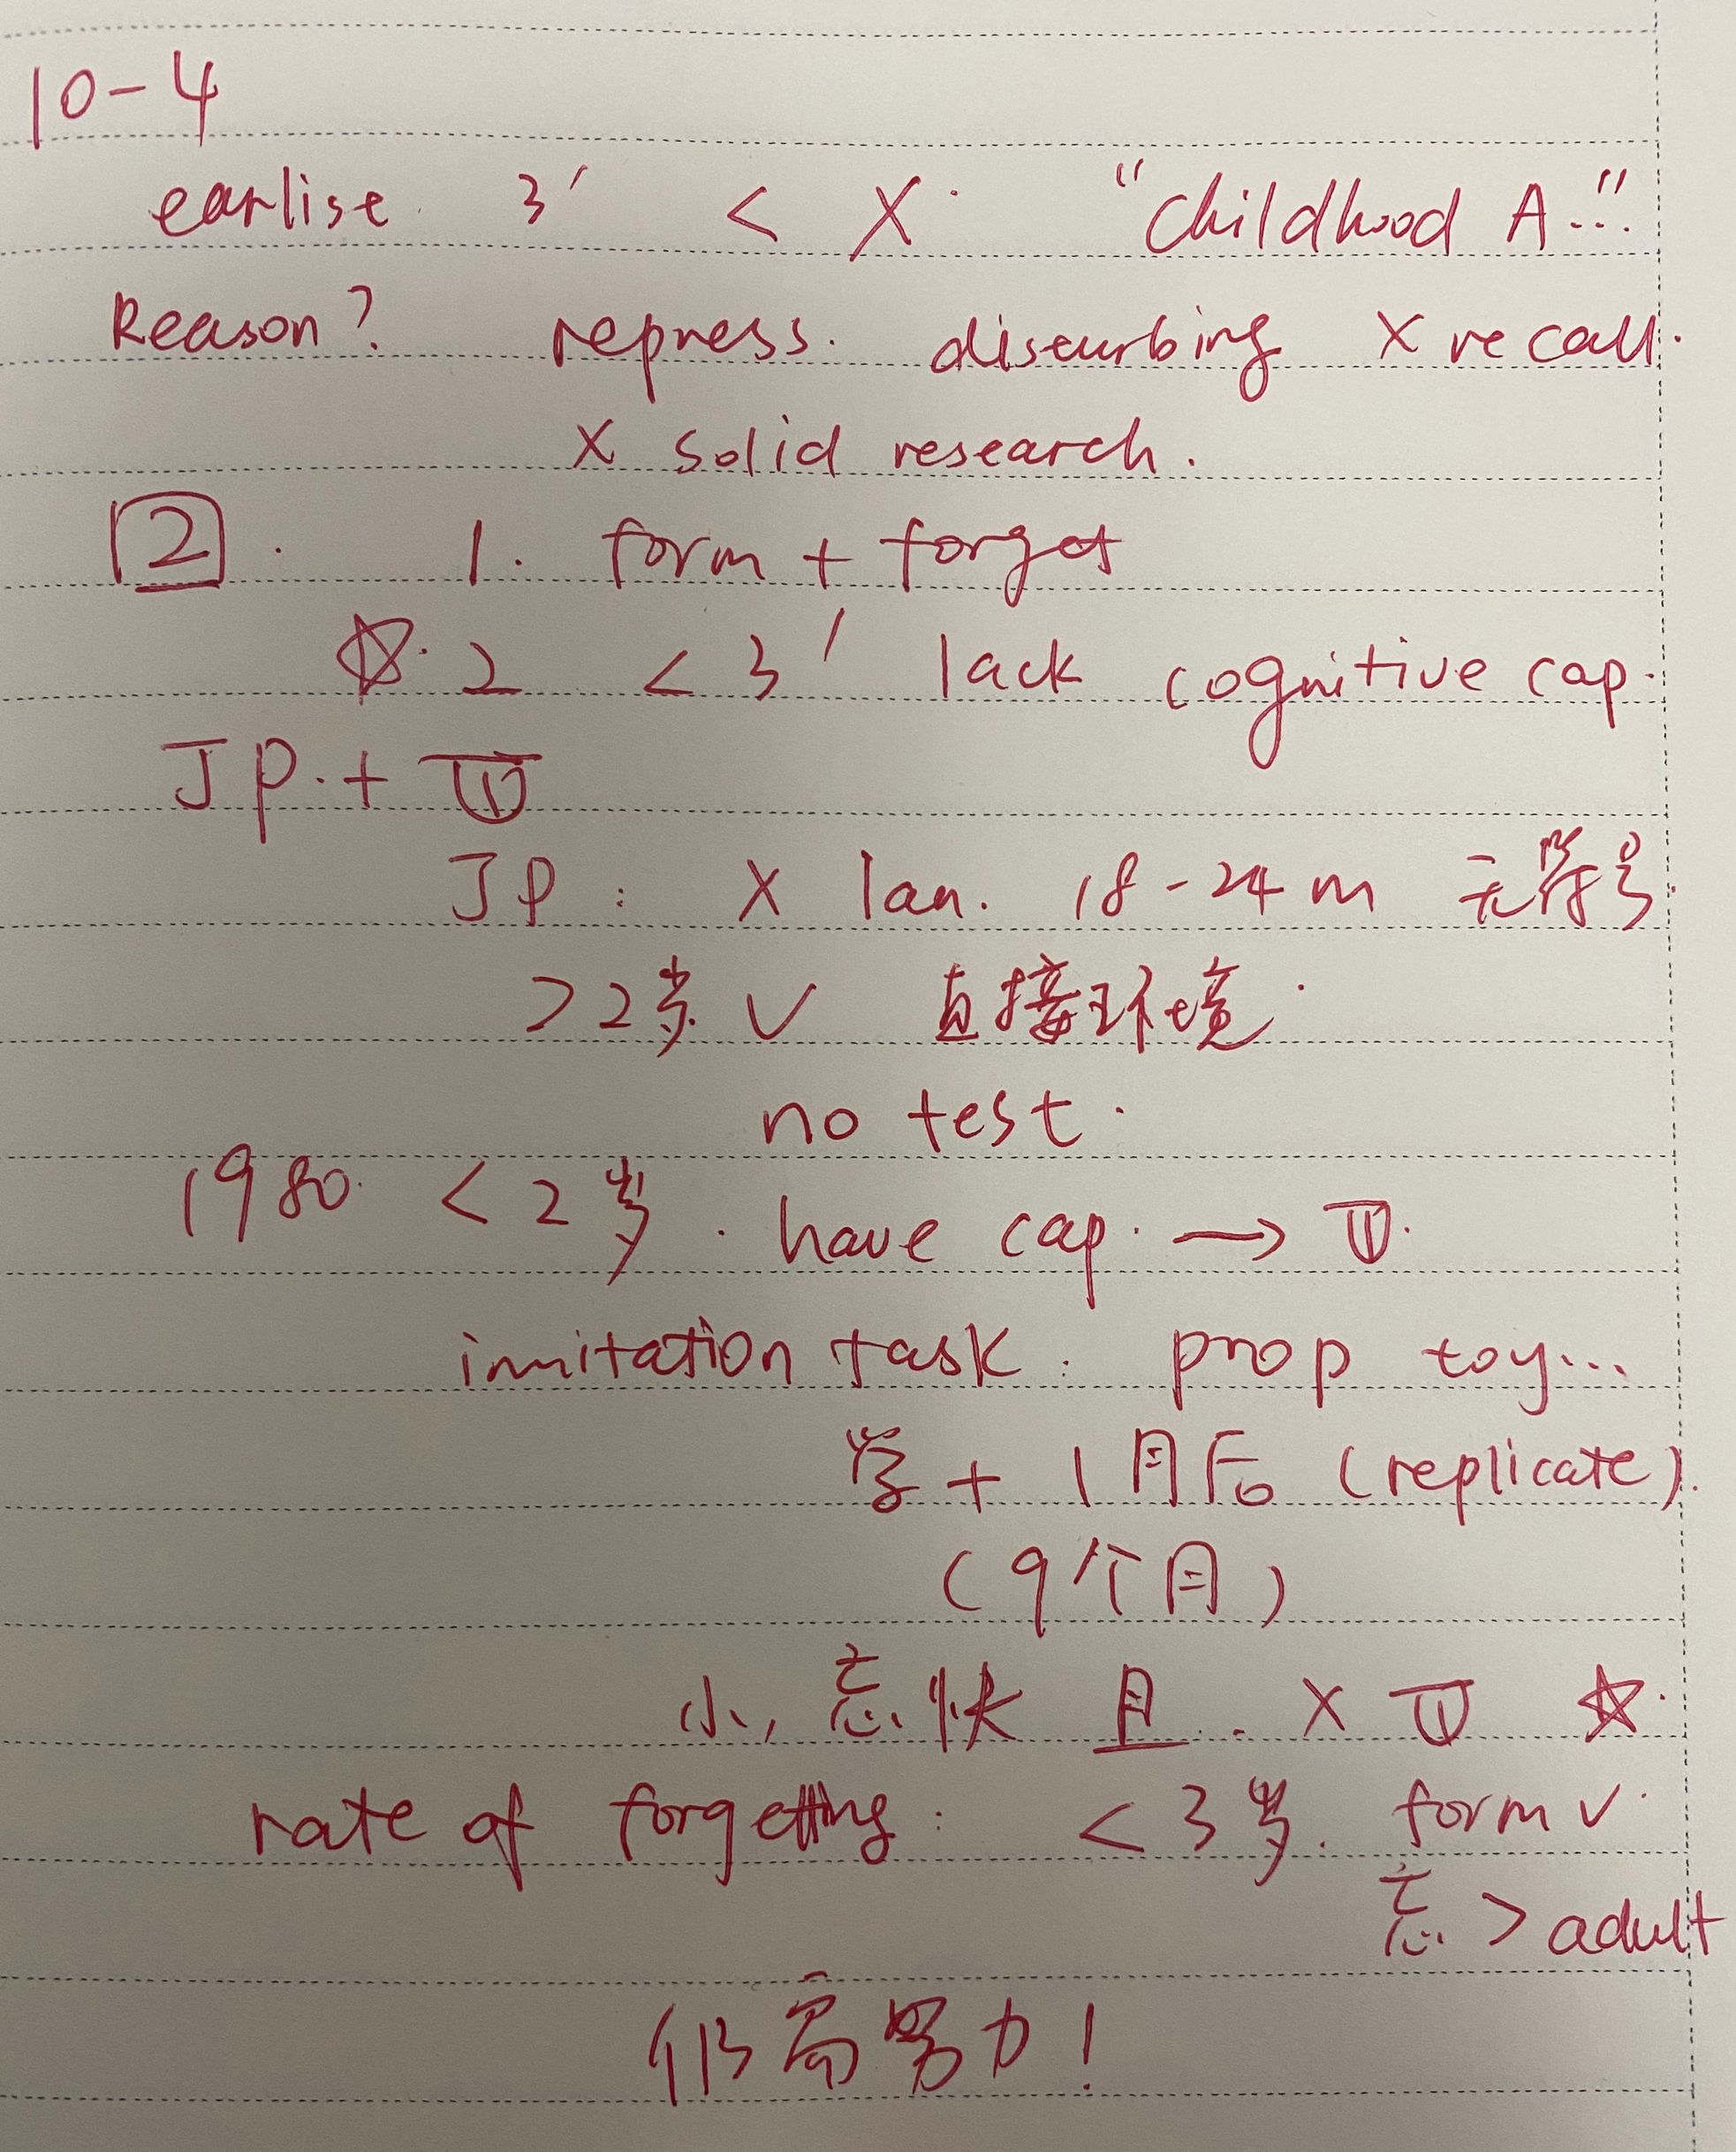 10-4
earlise 3' < X "Childhood A..."
Reason? repress. disturbing X recall.
X solid research.
2. 1. form + forget
☆ 2 < 3' lack cognitive cap.
JP. +
JP: X lan. 18-24 m 无符号.
>2岁 ✓ 直接环境.
no test.
1980. <2岁. have cap. →
imitation task: prop toy...
学 + 1月后 (replicate).
(9个月)
小, 忘快 且. X ☆.
rate of forgetting: <3岁. form ✓.
忘 > adult
仍需努力!